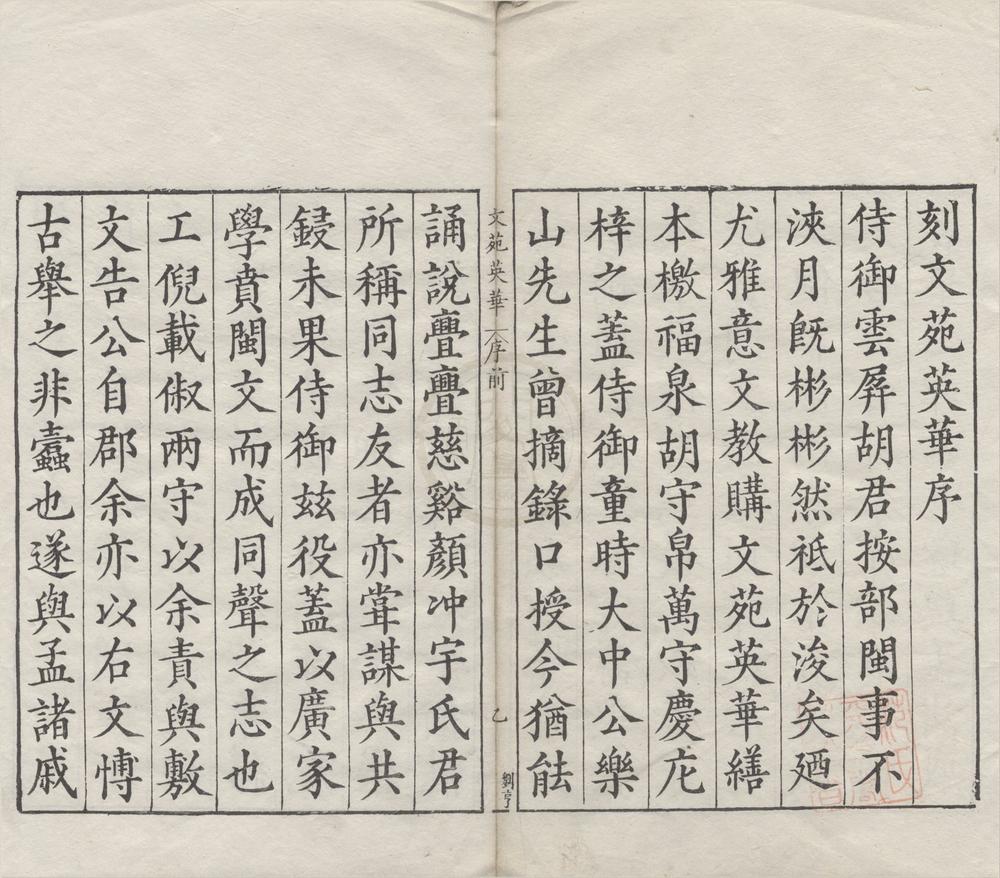 刻文苑英華序
侍御雲屏胡君按部閩事不
浹月旣彬彬然祇於浚矣廼
尤雅意文教購文苑英華繕
本檄福泉胡守帛萬守慶庀
梓之蓋侍御童時大中公樂
山先生曾摘錄口授今猶能
文苑英華 序前 乙 劉亨
誦說亹亹慈谿顏冲宇氏君
所稱同志友者亦甞謀與共
鋟未果侍御玆役蓋以廣家
學賁閩文而成同聲之志也
工倪載俶兩守以余責與敷
文告公自郡余亦以右文愽
古舉之非蠹也遂與孟諸戚